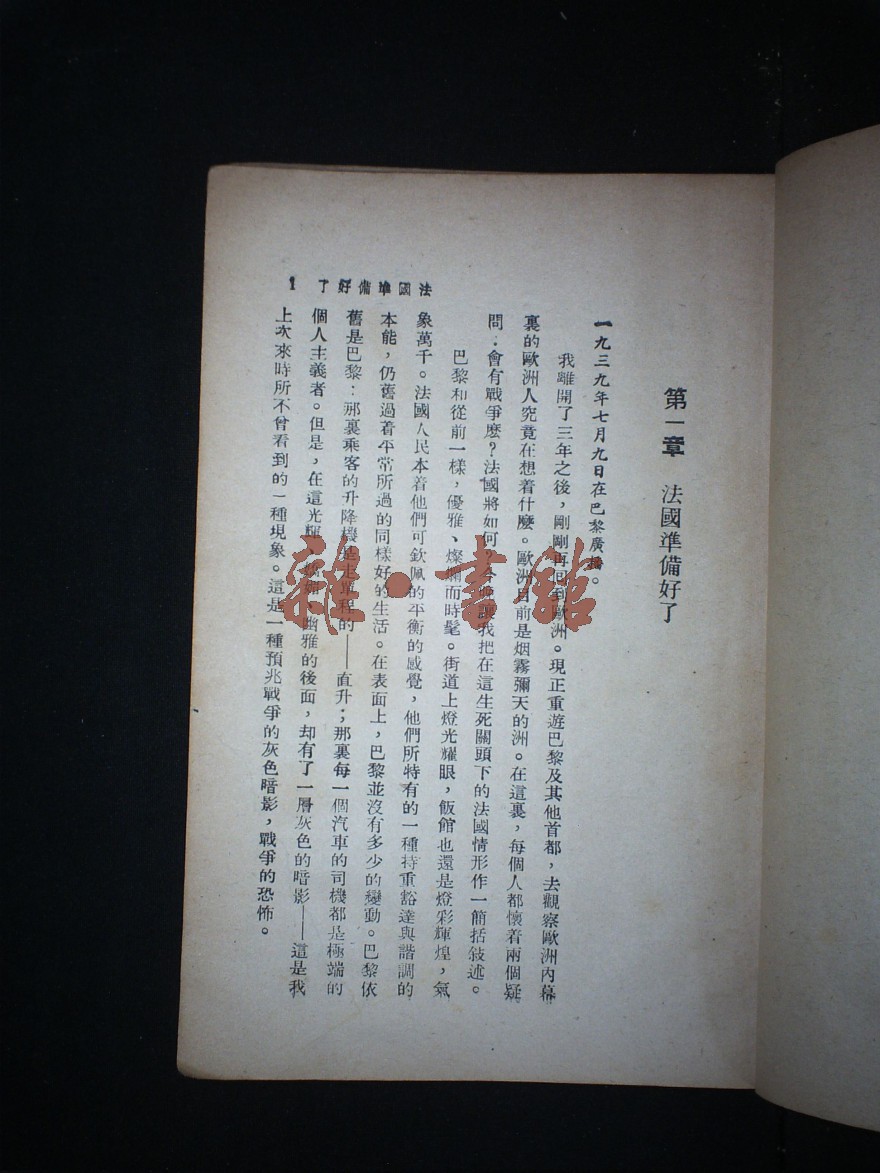 第一章 法國準備好了
一九三九年七月九日在巴黎廣播。
我離開了三年之後，剛剛再回到歐洲。現正重遊巴黎及其他首都，去觀察歐洲內幕
裏的歐洲人究竟在想着什麼。歐洲目前是烟霧彌天的洲。在這裏，每個人都懷着兩個疑
問：會有戰爭麽？法國將如何？今晚讓我把在這生死關頭下的法國情形作一簡括敍述。
巴黎和從前一樣，優雅、燦斕而時髦。街道上燈光耀眼，飯館也還是燈彩輝煌，氣
象萬千。法國人民本着他們可欽佩的平衡的感覺，他們所特有的一種持重豁達與諧調的
本能，仍舊過着平常所過的同樣好的生活。在表面上，巴黎並沒有多少的變動。巴黎依
舊是巴黎：那裏乘客的升降機是走單程的——直升；那裏每一個汽車的司機都是極端的
個人主義者。但是，在這光輝 幽雅的後面，却有了一層灰色的暗影——這是我
上次來時所不曾看到的一種現象。這是一種預兆戰爭的灰色暗影，戰爭的恐怖。
法國準備好了 1
雜·書館